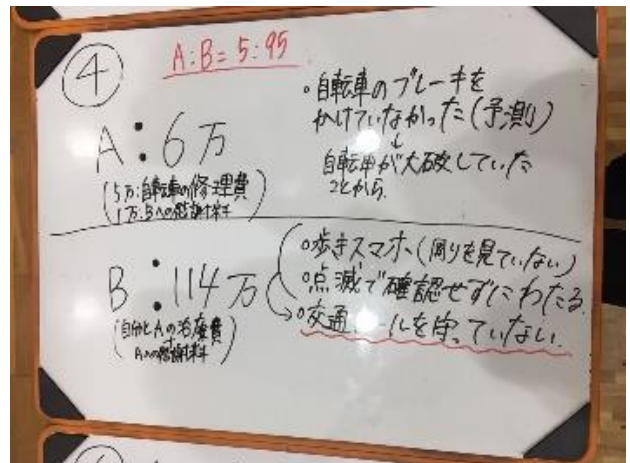 ④
A:B=5:95
A:6万
(5万:自転車の修理費
1万:Bへの慰謝料)
。自転車のブレーキを
かけていなかった(予測)
↓
自転車が大破していた
ことから。
B:114万
(自分とAの治療費
Aへの慰謝料)
。歩きスマホ(周りを見ていない)
。点滅で確認せずにわたる
→。交通ルールを守っていない。